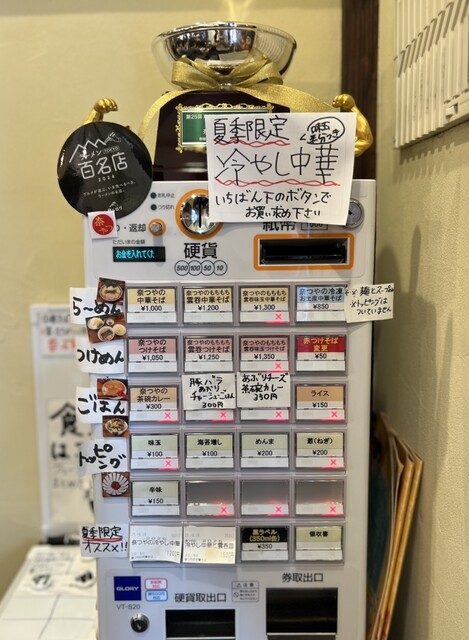 夏季限定
味玉
冷やし中華
いちばん下のボタンで
お買い求め下さい
ラーメン TOKYO
百名店
2024
返却
ただいまの金額
お金を入れてください
硬貨
500 100 50 10
紙幣
1000
らーめん
奈つやの
中華そば
¥1,000
奈つやのもちもち
雲呑中華そば
¥1,200
奈つやのもちもち
雲呑味玉中華そば
¥1,300
奈つやの冷凍
お土産中華そば
¥850
※麺とスープのみ
※トッピングは
ついていません
つけめん
奈つやの
つけそば
¥1,050
奈つやのもちもち
雲呑つけそば
¥1,250
奈つやのもちもち
¥1,350
赤つけそば
変更
¥50
ごはん
奈つやの
茶碗カレー
¥300
豚バラ
炙り
チャーシューごはん
300円
あぶりチーズ
茶碗カレー
350円
ライス
¥150
トッピング
味玉
¥100
海苔増し
¥100
めんま
¥200
葱(ねぎ)
¥200
辛味
¥150
夏季限定
オススメ!!
奈つやの冷やし中華
黒ラベル
(350ml缶)
¥350
領収書
GLORY
VT-S20
硬貨取出口
券取出口